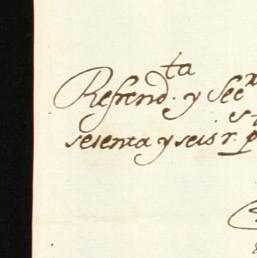 Refrend.ta y Sec
sesenta y seis r.